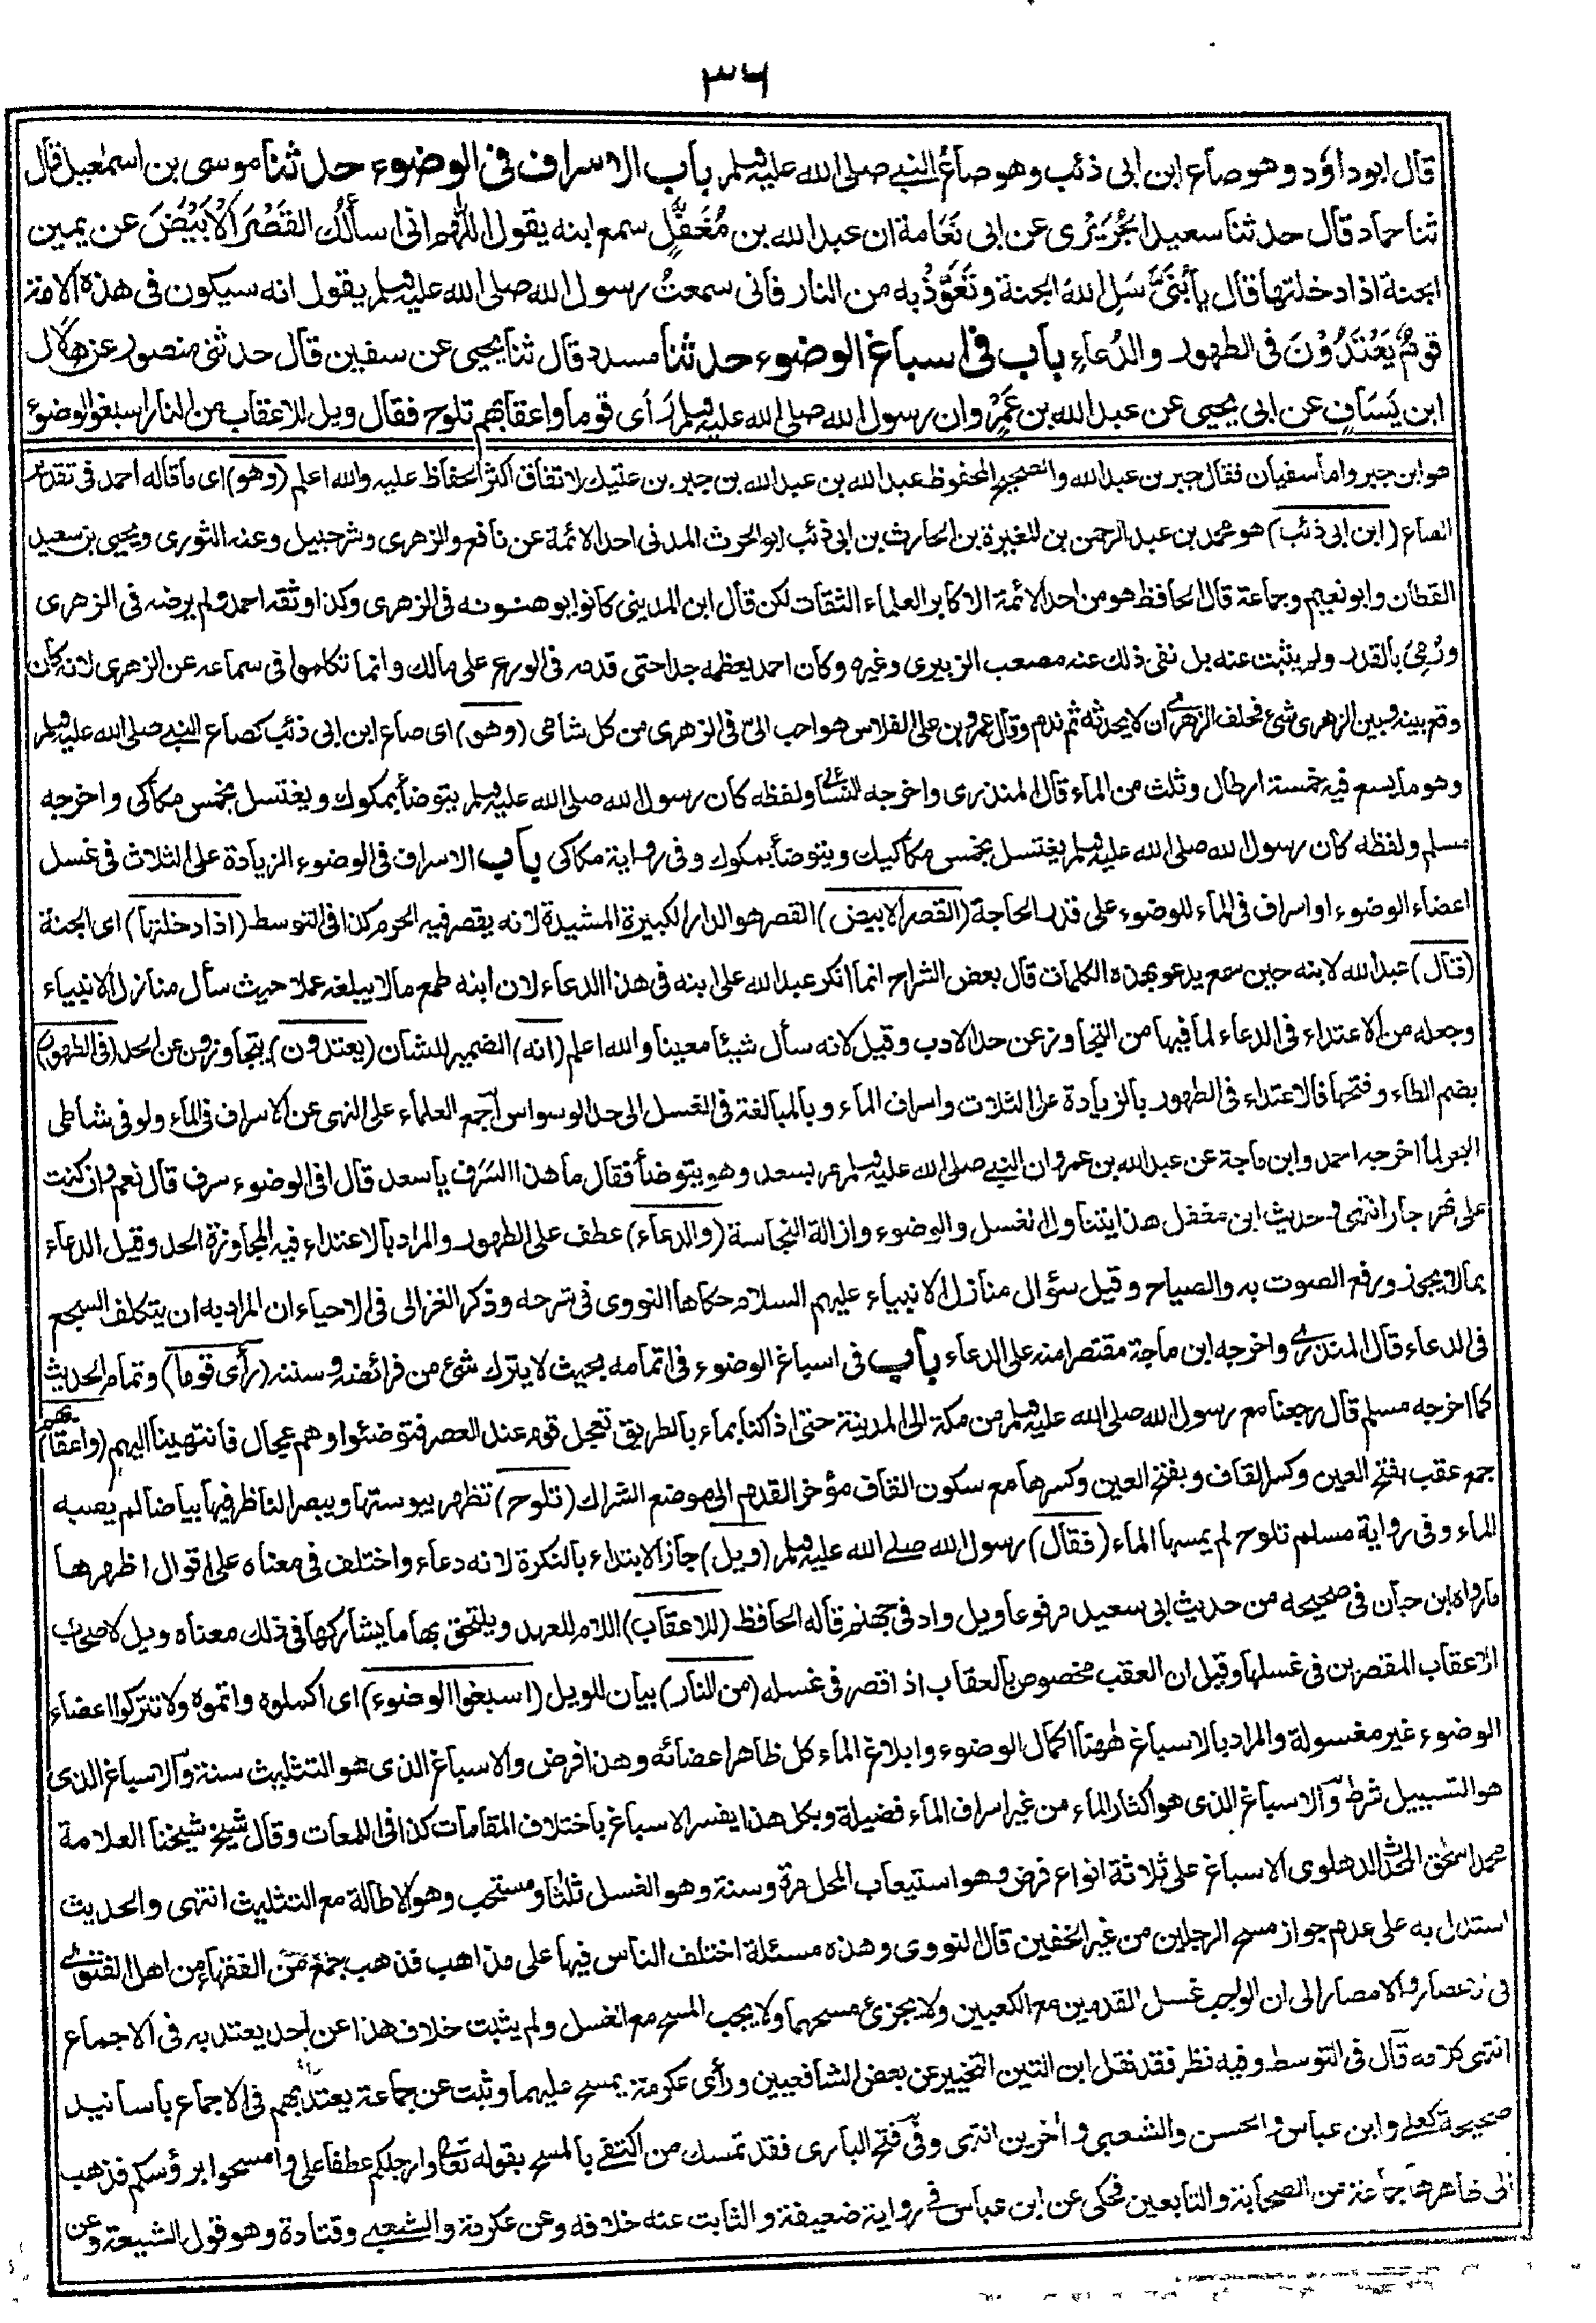 ٣٦
قال ابو داؤد وهو صاع ابن ابى ذئب وهو صاع النبي صلى الله عليه وسلم باب الاسراف فى الوضوء حدثنا موسى بن اسمعيل قال
ثنا حماد قال حدثنا سعيد الجُرَيْرِى عن ابى نَعَامة ان عبد الله بن مُغَفَّلٍ سمع ابنه يقول اللهم انى اسألك القَصْرَ الْاَبْيَضَ عن يمين
الجنة اذا دخلتها قال يا بُنَىَّ سَلِ اللهَ الجنة وتَعَوَّذْ به من النار فانى سمعتُ رسول الله صلى الله عليه وسلم يقول انه سيكون فى هذه الامة
قومٌ يَعْتَدُوْنَ فى الطهور والدُعاءِ باب فى اسباغ الوضوء حدثنا مسدد قال ثنا يحيى عن سفين قال حدثنى منصور عن هلال
ابن يَسَافٍ عن ابى يحيى عن عبد الله بن عَمْرٍو ان رسول الله صلى الله عليه وسلم رَأى قوما واعقابهم تلوح فقال ويل للاعقاب من النار اسبغوا الوضوء
هو ابن جبر واما سفيان فقال جبر بن عبد الله والصحيح المحفوظ عبد الله بن عبد الله بن جبر بن عتيك لاتفاق اكثر الحفاظ عليه والله اعلم (وهو) اى ما قاله احمد فى تقدير
الصاع (ابن ابى ذئب) هو محمد بن عبد الرحمن بن المغيرة بن الحارث بن ابى ذئب ابو الحرث المدنى احد الائمة عن نافع والزهرى وشرحبيل وعنه الثورى ويحيى بن سعيد
القطان وابو نعيم وجماعة قال الحافظ هو من احد الائمة الاكابر العلماء الثقات لكن قال ابن المدينى كانوا يوهنونه فى الزهرى وكذا وثقه احمد ولم يرضه فى الزهرى
ورُمِىَ بالقدر ولم يثبت عنه بل نفى ذلك عنه مصعب الزبيرى وغيره وكان احمد يعظمه جدا حتى قدمه فى الورع على مالك وانما تكلموا فى سماعه عن الزهرى لانه كان
وقع بينه وبين الزهرى شئ فحلف الزهرى ان لا يحدثه ثم ندم وقال عمرو بن على الفلاس هو احب الىّ فى الزهرى من كل شامى (وهو) اى صاع ابن ابى ذئب كصاع النبي صلى الله عليه وسلم
وهو ما يسع فيه خمسة ارطال وثلث من الماء قال المنذرى واخرجه النسائى ولفظه كان رسول الله صلى الله عليه وسلم يتوضأ بمكوك ويغتسل بخمس مكاكى واخرجه
مسلم ولفظه كان رسول الله صلى الله عليه وسلم يغتسل بخمس مكاكيك ويتوضأ بمكوك وفى رواية مكاكى باب الاسراف فى الوضوء الزيادة على الثلاث فى غسل
اعضاء الوضوء او اسراف فى الماء للوضوء على قدر الحاجة (القصر الابيض) القصر هو الدار الكبيرة المشيدة لانه يقصر فيه الحرم كذا فى التوسط (اذا دخلتها) اى الجنة
(قال) عبد الله لابنه حين سمع يدعو بهذه الكلمات قال بعض الشراح انما انكر عبد الله على ابنه فى هذا الدعاء لان ابنه طمع ما لا يبلغه عملا حيث سأل منازل الانبياء
وجعله من الاعتداء فى الدعاء لما فيها من التجاوز عن حد الادب وقيل لانه سأل شيئا معينا والله اعلم (انه) الضمير للشان (يعتدون) يتجاوزون عن الحد (فى الطهور)
بضم الطاء وفتحها فالاعتداء فى الطهور بالزيادة على الثلاث واسراف الماء وبالمبالغة فى الغسل الى حد الوسواس اجمع العلماء على النهى عن الاسراف فى الماء ولو فى شاطى
البحر لما اخرجه احمد وابن ماجة عن عبد الله بن عمرو ان النبي صلى الله عليه وسلم مر بسعد وهو يتوضأ فقال ما هذا السَرَف يا سعد قال افى الوضوء سرف قال نعم وان كنت
على نهر جار انتهى وحديث ابن مغفل هذا يتناول الغسل والوضوء وازالة النجاسة (والدعاء) عطف على الطهور والمراد بالاعتداء فيه المجاوزة الحد وقيل الدعاء
بما لا يجوز ورفع الصوت به والصياح وقيل سؤال منازل الانبياء عليهم السلام حكاها النووى فى شرحه وذكر الغزالى فى الاحياء ان المراد به ان يتكلف السجع
فى الدعاء قال المنذرى واخرجه ابن ماجة مقتصرا منه على الدعاء باب فى اسباغ الوضوء فى اتمامه بحيث لا يترك شئ من فرائضه وسننه (رأى قوما) وتمام الحديث
كما اخرجه مسلم قال رجعنا مع رسول الله صلى الله عليه وسلم من مكة الى المدينة حتى اذا كنا بماء بالطريق تعجل قوم عند العصر فتوضئوا وهم عجال فانتهينا اليهم (واعقابهم)
جمع عقب بفتح العين وكسر القاف وبفتح العين وكسرها مع سكون القاف مؤخر القدم الى موضع الشراك (تلوح) تظهر يبوستها ويبصر الناظر فيها بياضا لم يصبه
الماء وفى رواية مسلم تلوح لم يمسها الماء (فقال) رسول الله صلى الله عليه وسلم (ويل) جاز الابتداء بالنكرة لانه دعاء واختلف فى معناه على اقوال اظهرها
ما رواه ابن حبان فى صحيحه من حديث ابى سعيد مرفوعا ويل واد فى جهنم قاله الحافظ (للاعقاب) اللام للعهد ويلتحق بها ما يشاركها فى ذلك معناه ويل لاصحاب
الاعقاب المقصرين فى غسلها وقيل ان العقب مخصوص بالعقاب اذا قصر فى غسله (من النار) بيان للويل (اسبغوا الوضوء) اى اكملوه واتموه ولا تتركوا اعضاء
الوضوء غير مغسولة والمراد بالاسباغ ههنا اكمال الوضوء وابلاغ الماء كل ظاهر اعضائه وهذا فرض والاسباغ الذى هو التثليث سنة والاسباغ الذى
هو التسييل شرط والاسباغ الذى هو اكثار الماء من غير اسراف الماء فضيلة وبكل هذا يفسر الاسباغ باختلاف المقامات كذا فى اللمعات وقال شيخ شيخنا العلامة
محمد اسحق المحدث الدهلوى الاسباغ على ثلاثة انواع فرض وهو استيعاب المحل مرة وسنة وهو الغسل ثلثا ومستحب وهو الاطالة مع التثليث انتهى والحديث
استدل به على عدم جواز مسح الرجلين من غير الخفين قال النووى وهذه مسئلة اختلف الناس فيها على مذاهب فذهب جمع من الفقهاء من اهل الفتوى
فى الاعصار والامصار الى ان الواجب غسل القدمين مع الكعبين ولا يجزئ مسحهما ولا يجب المسح مع الغسل ولم يثبت خلاف هذا عن احد يعتد به فى الاجماع
انتهى كلامه قال فى التوسط وفيه نظر فقد نقل ابن التين التخيير عن بعض الشافعيين ورأى عكرمة يمسح عليهما وثبت عن جماعة يعتد بهم فى الاجماع باسانيد
صحيحة كعلى وابن عباس والحسن والشعبى واخرين انتهى وفى فتح البارى فقد تمسك من اكتفى بالمسح بقوله تعالى وارجلكم عطفا على وامسحوا برؤسكم فذهب
الى ظاهرها جماعة من الصحابة والتابعين فحكى عن ابن عباس فى رواية ضعيفة والثابت عنه خلافه وعن عكرمة والشعبى وقتادة وهو قول الشيعة وعن